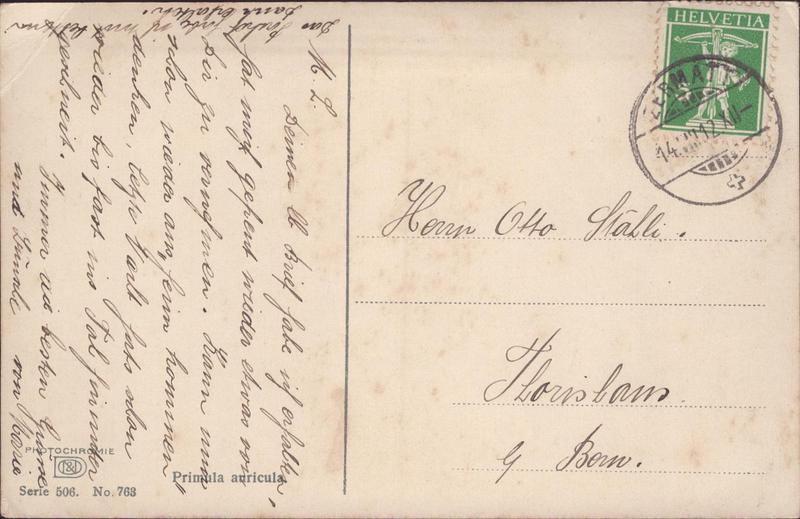 Das Porträt habe ich mit bestem
Dank erhalten.
M. L.
Deinen lb Brief habe ich erhalten,
hat mich gefreut wieder etwas von
Dir zu vernehmen. Kann nun
schon wieder ans heim kommen
denken, letzte Woche hats schon
wieder bis fast ins Tal hinunter
geschneit.
Immer die besten Grüsse
und Künsle von Marie
HELVETIA
ZERMATT
14. VIII 12
Herrn Otto Stähli.
b/ Bern.
PHOTOCHROMIE
Serie 506. No. 763
Primula auricula.